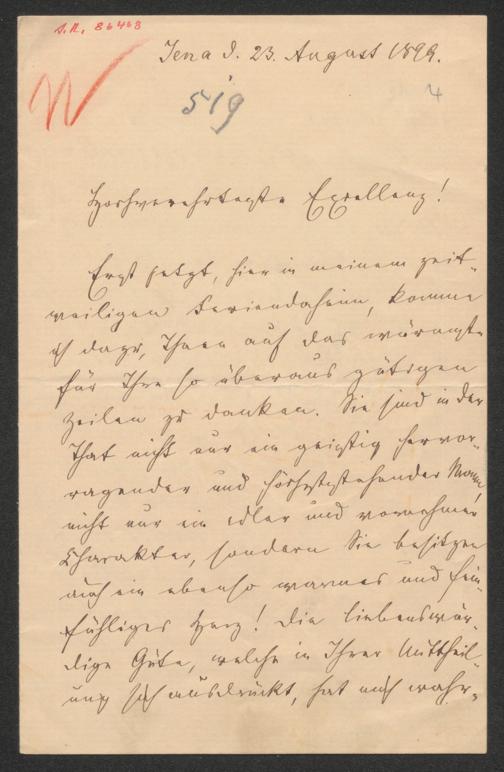 I.N. 86468
Jena d. 23. August 1899.
519
4
Hochverehrteste Excellenz!
Erst jetzt, hier in meinem zeit-
weiligen Feriendaheim, komme
ich dazu, Ihnen auf das wärmste
für Ihre so überaus gütigen
Zeilen zu danken. Sie sind in der
That nicht nur ein geistig hervor-
ragender und höchststehender Mann,
nicht nur ein edler und vornehmer
Charakter, sondern Sie besitzen
auch ein ebenso warmes und fein-
fühliges Herz! Die liebenswür-
dige Güte, welche in Ihrer Mittheil-
ung sich ausdrückt, hat mich wahr-